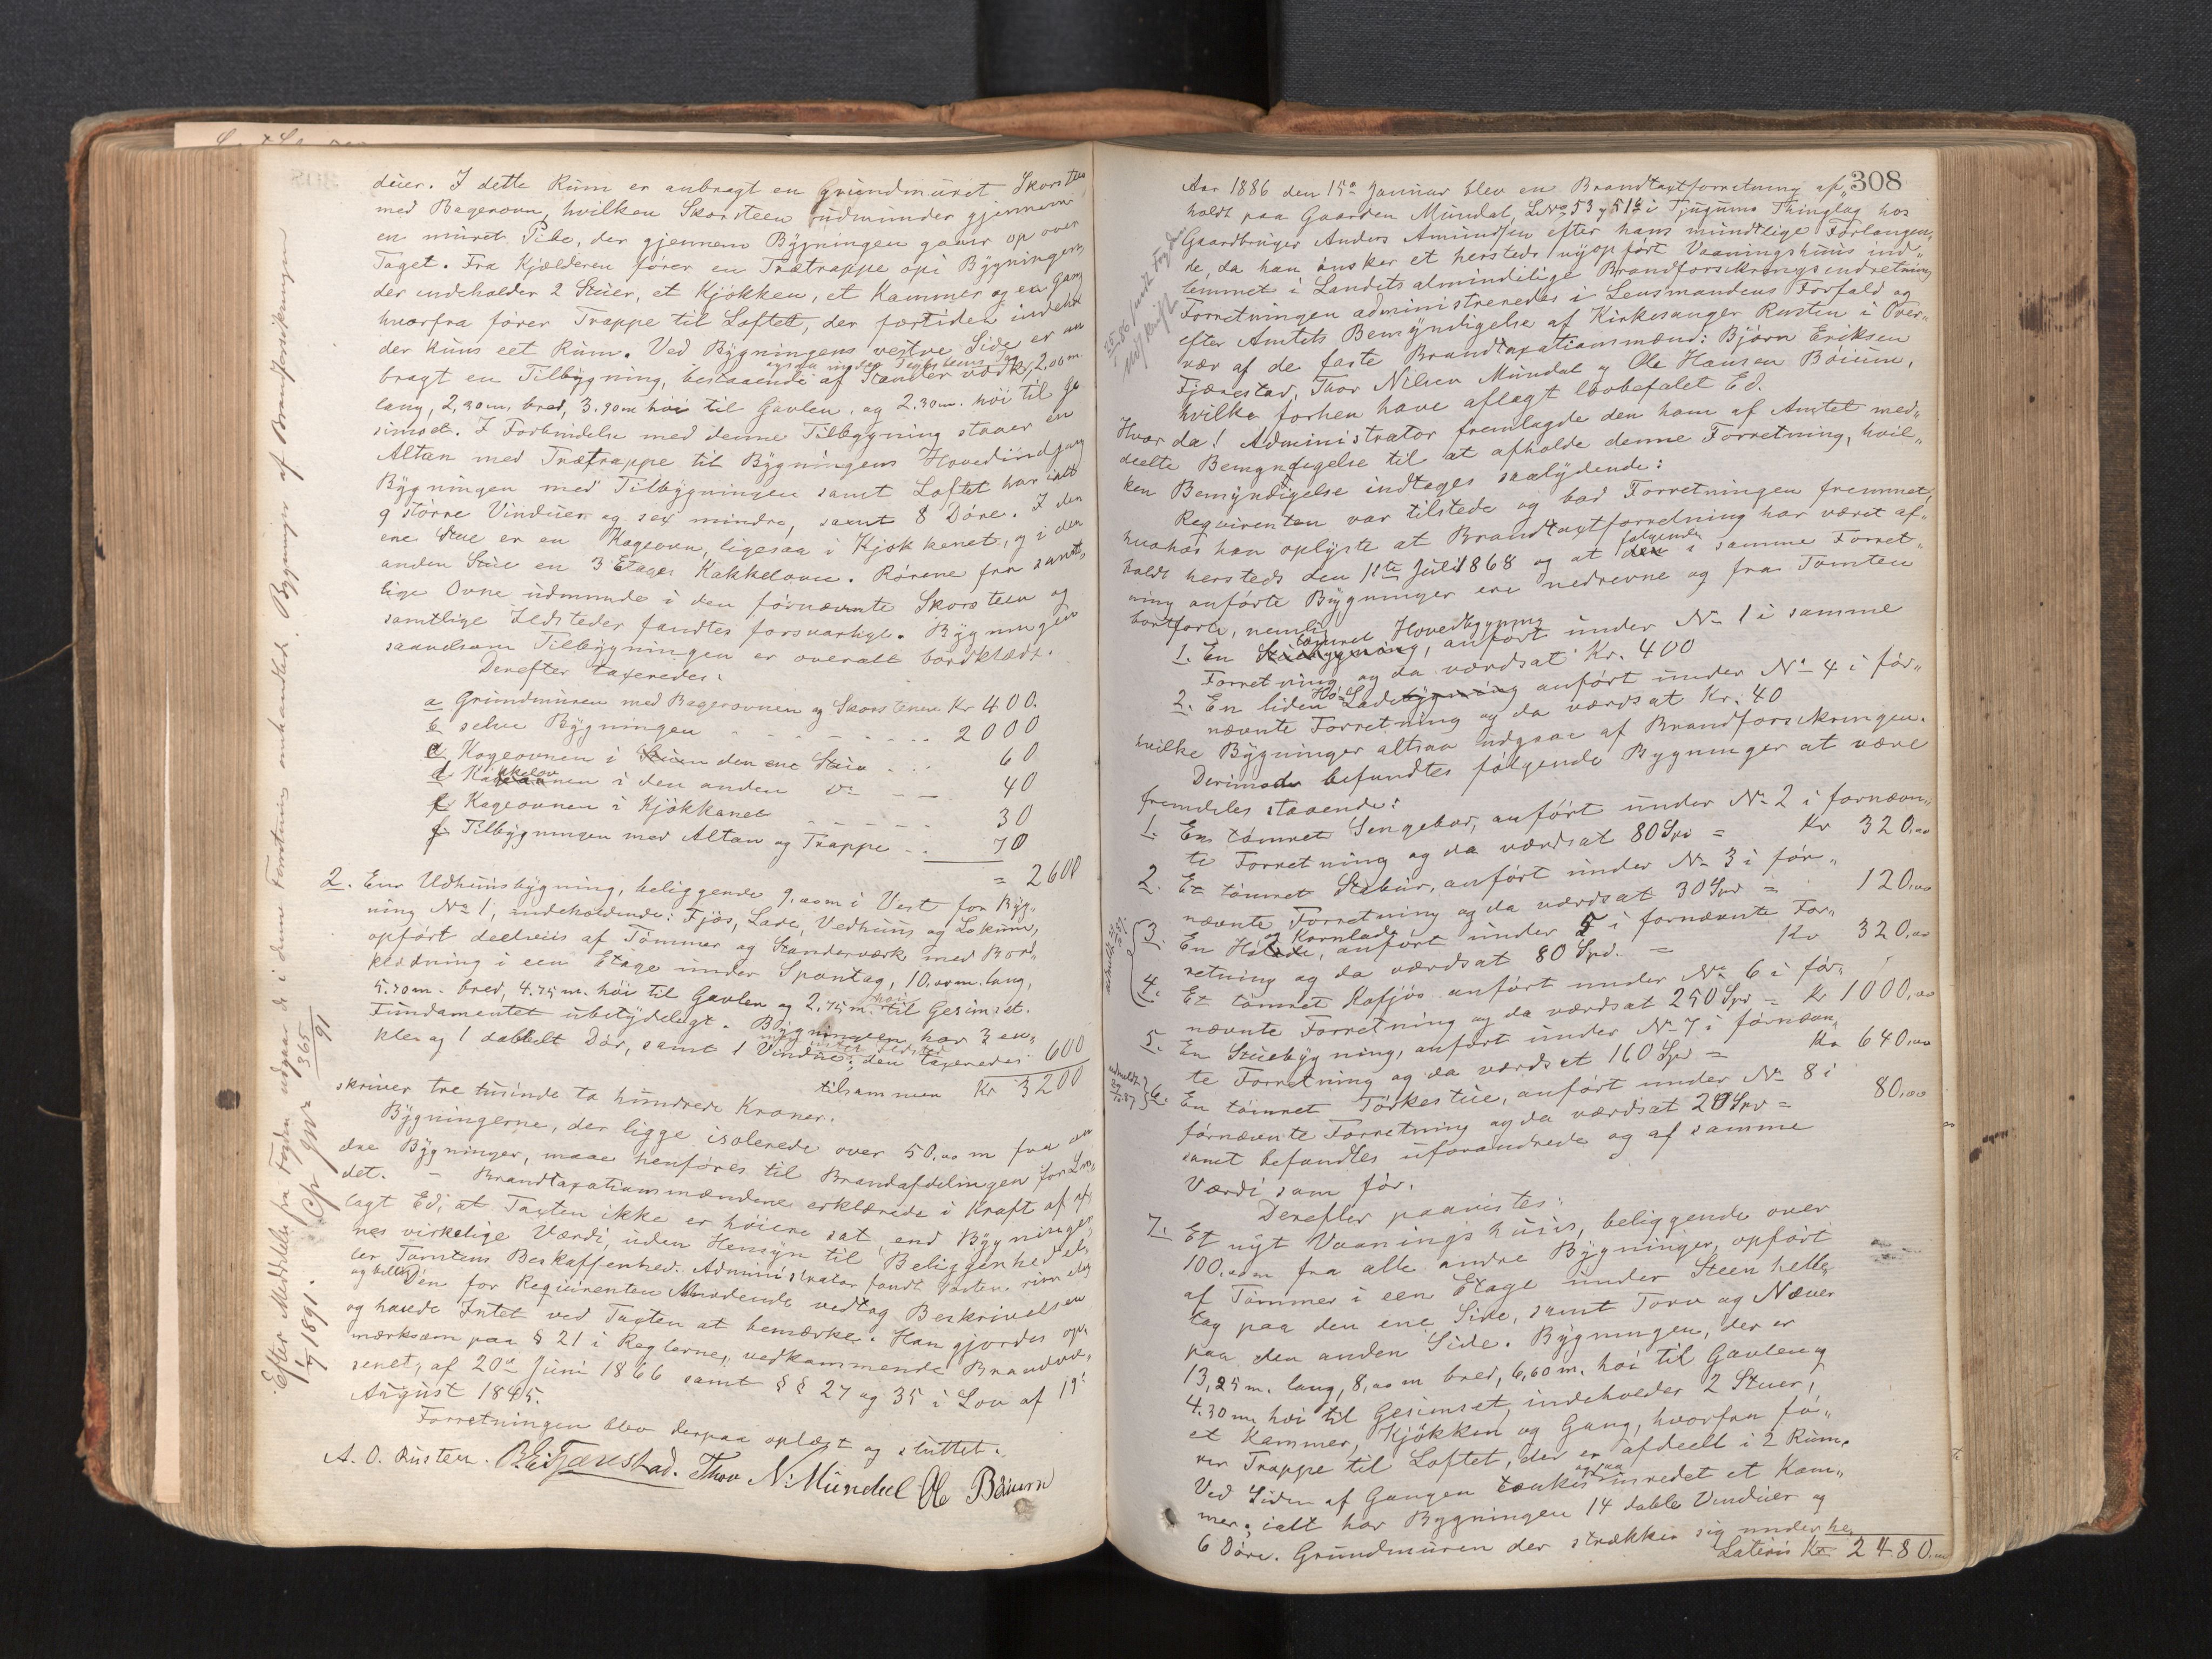 duer. I dette Rum er anbragt en Grundmuret Skorsten
med Bagerovn, hvilken Skorsteen udmunder gjennem
en muret Pibe, der gjennem Bygningen gaar op over
Taget. Fra Kjælderen fører en Trætrappe op i Bygningen,
der indeholder 2 Stuer, et Kjøkken, et Kammer og en Gang
hvorfra fører Trappe til Loftet, der fortiden indehol
der kuns eet Rum. Ved Bygningens vestre Side er an
bragt en Tilbygning, bestaaende af Stænderværk, 2.00 m.
lang, 2,30 m. bred, 3.90 m høi til Gavlen, og 2.30 m. høi til Ge
simset. I Forbindelse med denne Tilbygning staaer en
Altan med Trætrappe til Bygningens Hovedindgang
Bygningen med Tilbygningen samt Loftet har ialt
9 større Vinduer og sex mindre, samt 8 Døre. I den
ene Stue er en Kageovn, ligesaa i Kjøkkenet, og i den
anden Stue en 3 Etages Kakkelovn. Rørene fra samt,
lige Ovne udmunde i den førnævnte Skorsteen og
samtlige Ildsteder fandtes forsvarlige. Bygningen
saavelsom Tilbygningen er overalt bordklædt.
Derefter taxeredes:
a Grundmuren med Bagerovnen og Skorstenen Kr 400.
b selve Bygningen 2000
c Kogeovnen i den ene Stue 60
d Kakkelovnen i den anden Do 40
e Kageovnen i Kjøkkenet 30
f Tilbygningen med Altan og Trappe 70
= 2600
2. En Udhuusbygning, beliggende 9.00 m i Vest for Byg„
ning No 1, indeholdende: Fjøs, Lade, Vedhuus og Lokum,
opført deelviis af Tømmer og Standerværk med Bord„
klædning i een Etage under Spontag, 10,00 m. lang,
5.70 m. bred, 4.75 m. høi til Gavlen og 2.75 m. høi til Gesimset.
Fundamentet ubetydeligt. Bygningen har 3 en„
kle og 1 dobbelt Dør, samt 1 Vindue; den taxeredes 600
tilsammen Kr 3200
skriver tre tusinde to hundrede Kroner.
Bygningerne, der ligge isolerede over 50,00 m fra an
dre Bygninger, maae henføres til Brandafdelingen for Lan
det. – Brandtaxationsmændene erklærede i Kraft af af
lagt Ed, at Taxten ikke er høiere sat, end Bygninger„
nes virkelige Værdi, uden Hensyn til Beliggenhed el„
ler Tomtens Beskaffenhed. Administrator fandt Taxten rimelig
og billig. Den for Reqvirenten Mødende vedtog Beskrivelsen
og havde Intet ved Taxten at bemærke. Han gjordes op„
mærksom paa § 21 i Reglerne, vedkommende Brandvæ„
senet, af 20de Juni 1866 samt §§ 27 og 35 i Lov af 19de
August 1845.
Forretningen blev derpaa oplæst og sluttet.
A. O. Rusten. B. E. Fjærestad. Thor N. Mundal Ole Bøium
Efter Meddelelse fra Fogden udgaar de i denne Forretning omhandlede Bygninger af Brandforsikringen
1/7 1891. Cfr. Jour 365/91
308
Aar 1886 den 15de Januar blev en Brandtaxtforretning af„
holdt paa Gaarden Mundal, L.No 53 og 51b i Tjugums Thinglag hos
Gaardbruger Anders Amundsen efter hans mundtlige Forlangen„
de, da han ønsker et hersteds nyopført Vaaningshuus ind„
lemmet i Landets almindelige Brandforsikringsindretning
Forretningen administreredes i Lensmandens Forfald og
efter Amtets Bemyndigelse af Kirkesanger Rusten i Over„
vær af de faste Brandtaxationsmænd: Bjørn Eriksen
Fjærestad, Thor Nilsen Mundal og Ole Hansen Bøium,
hvilke forhen have aflagt lovbefalet Ed.
Hvor da! Administrator fremlagde den ham af Amtet med„
deelte Bemyndigelse til at afholde denne Forretning, hvil„
ken Bemyndigelse indtages saalydende:
Reqvirenten var tilstede og bad Forretningen fremmet,
hvorhos han oplyste at Brandtaxtforretning har været af„
holdt hersteds den 11te Juli 1868 og at følgende i samme Forret„
ning anførte Bygninger ere nedrevne og fra Tomten
bortførte, nemlig
1. En tømret Hovedbygning, anført under No 1 i samme
Forretning og da værdsat Kr. 400
2. En liden Hø-Lade anført under No 4 i før„
nævnte Forretning og da værdsat Kr. 40
hvilke Bygninger altsaa udgaae af Brandforsikringen.
Derimod befandtes følgende Bygninger at være
fremdeles staaende:
1. En tømret Sengebod, anført under No 2 i førnævn„
te Forretning og da værdsat 80 Spd = Kr 320,00
2. Et tømret Stabur, anført under No 3 i før„
nævnte Forretning og da værdsat 30 Spd = 120,00
3. En Hø og Kornlade, anført under 5 i førnævnte For„
retning og da værdsat 80 Spd. = Kr 320,00
4. Et tømret Kofjøs anført under No 6 i før„
nævnte Forretning og da værdsat 250 Spd = Kr 1000,00
5. En Stuebygning, anført under No 7 i førnævn„
te Forretning og da værdsat 160 Spd = Kr 640,00
6. En tømret Tørkestue, anført under No 8 i
førnævnte Forretning og da værdsat 20 Spd = 80,00
samt befandtes uforandrede og af samme
Værdi som før.
Derefter paavistes:
7. Et nyt Vaaningshuus, beliggende over
100,00 m fra alle andre Bygninger, opført
af Tømmer i een Etage under Steenhelle
tag paa den ene Side, samt Torv og Næver
paa den anden Side. Bygningen, der er
13,25 m. lang, 8,00 m bred, 6,60 m. høi til Gavlen og
4.30 m høi til Gesimset, indeholder 2 Stuer,
et Kammer, Kjøkken og Gang, hvorfra fø„
rer Trappe til Loftet, der er afdeelt i 2 Rum.
Ved Siden af Gangen tænkes ogsaa inredet et Kam„
mer; ialt har Bygningen 14 doble Vinduer og
6 Døre. Grundmuren der strækker sig under he„
Lateris Kr 2480,00